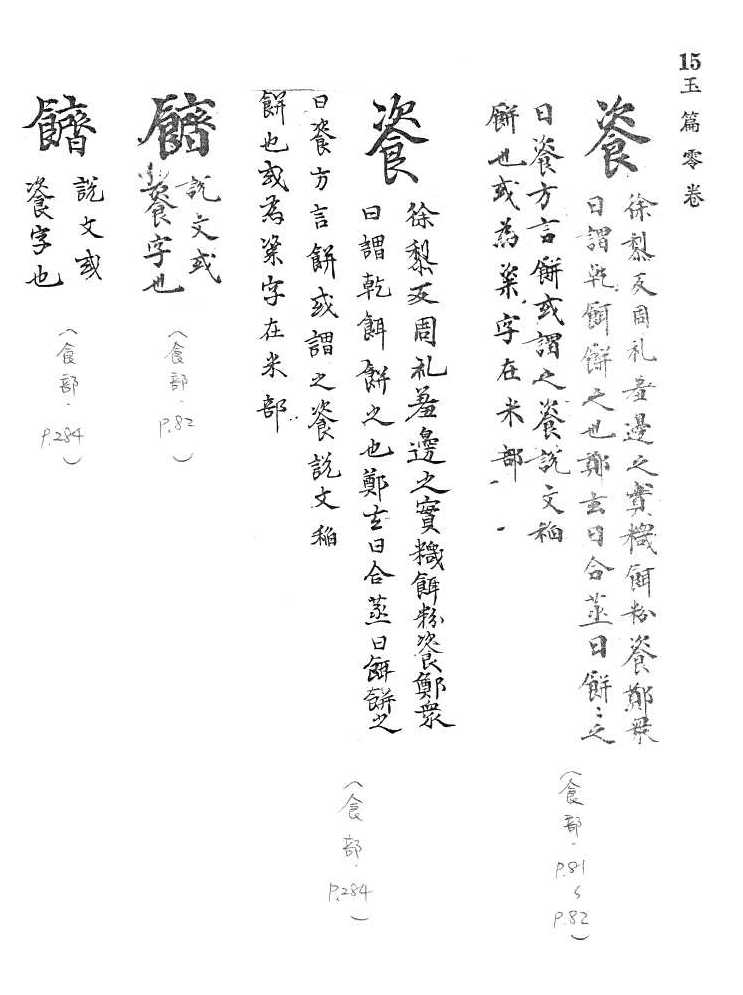 15玉篇零卷
餈
徐黎反周礼羞邊之實糗餌粉餈鄭衆
曰謂乾餌餅之也鄭玄曰合蒸曰餅〻之
曰餈方言餅或謂之餈說文稻
餅也或為粢字在米部
(食部．P.81~P.82)
餈
徐黎反周礼羞邊之實糗餌粉餈鄭衆
曰謂乾餌餅之也鄭玄曰合蒸曰餌餅之
曰餈方言餅或謂之餈說文稲
餅也或為粢字在米部
(食部．P.284)
䭣
說文或
餈字也
(食部．P.82)
䭣
說文或
餈字也
(食部．P.284)